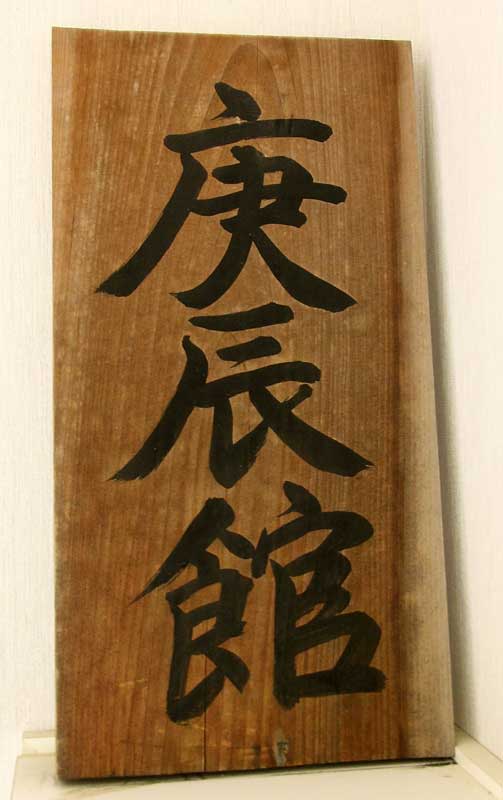 庚辰館